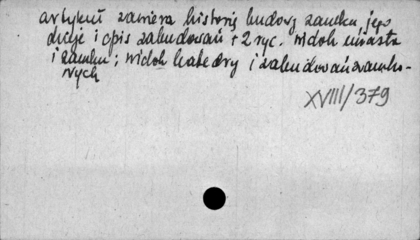 artykuł zawiera historię budowy zamku, jego
dzieje i opis zabudowań + 2 ryc. widok miasta
i zamku; widok katedry i zabudowań zamko-
wych
XVIII/379